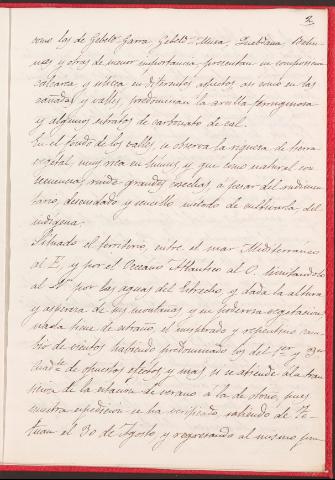 2
como las de Gebel Garra, Gebel Musa, Quebdana, Benu-
nes y otras de menor importancia, presentan su composicion
calcarea y silicea en diferentes aspectos asi como en las
cañadas y valles, predominan la arcilla ferruginosa
y algunos estratos de carbonato de cal.
En el fondo de los valles, se observa la riqueza de tierra
vegetal, muy rica en humus, y que como natural con
secuencia, rinde grandes cosechas a pesar del rudimen
tario, descuidado y sencillo metodo de cultivarla, del
indígena.
Situado el territorio, entre el mar Mediterraneo
al E. y por el Oceano Atlantico al O. limitandolo
al N. por las aguas del Estrecho, y dada la altura
y aspereza de sus montañas, y su poderosa vegetacion
nada tiene de estraño, el inesperado y repentino cam
bio de vientos habiendo predominado los del 1er y 3er
cuadte de opuestos efectos y mas si se atiende a la tran
sicion de la estacion de verano á la de otoño, pues
nuestra expedicion se ha verificado, saliendo de Te-
tuan el 30 de Agosto, y regresando al mismo pun-